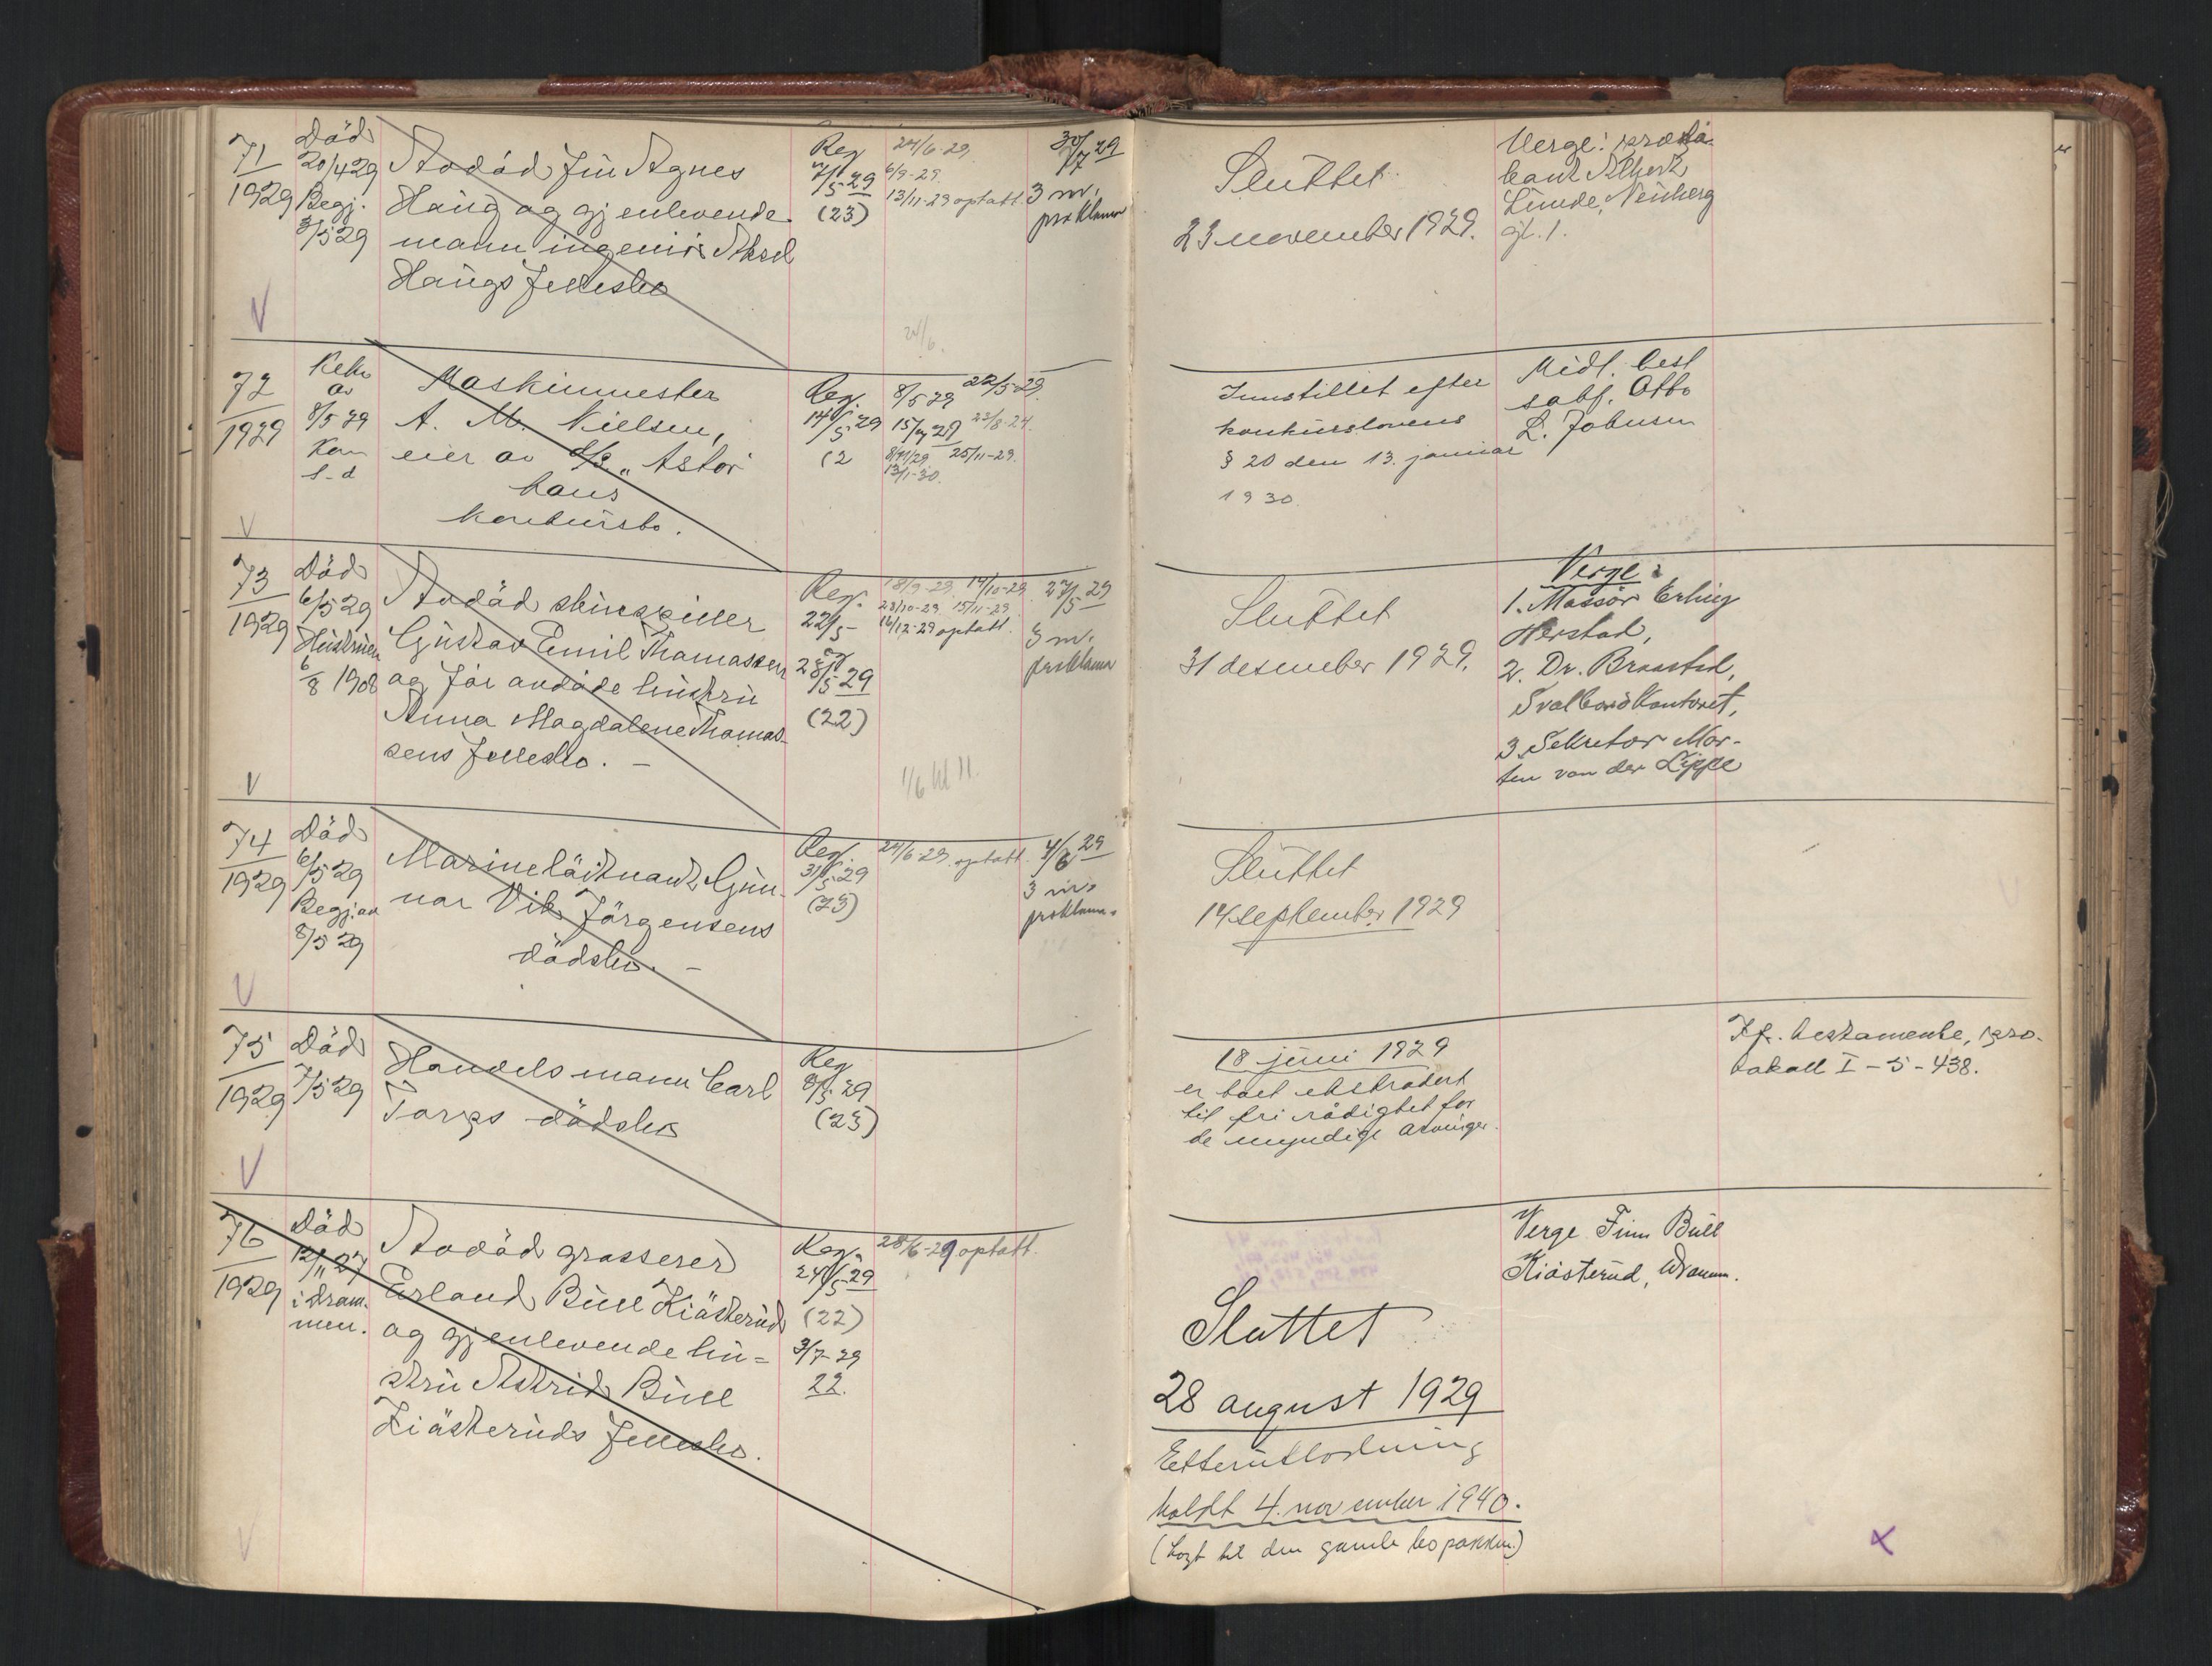 71
1929
Död
20/4 29
Begj.
3/5 29
Avdöd fru Agnes
Haug og gjenlevende
mann ingeniör Aksel
Haugs fellesbo
Reg
7/5 29
(23)
24/6-29
6/9-29
13/11-29 optatt.
30/7 29
3 m.
proklama
Sluttet
23 november 1929.
Verge:
Lunde, Neuberg
gt. 1.
72
1929
av
8/5 29
Kon
s.d
Maskinmester
A. M. Nielsen,
eier av d/s "Astor"
hans
konkursbo.
Reg.
14/5 29
(2
8/5 29 22/5-29.
15/7 29
8/11/29 25/11-29.
13/1-30.
24/6.
Innstillet efter
konkurslovens
§ 20 den 13. januar
1930.
Midl. best
sakf. Otto
L. Johnsen
73
1929
Död
6/5 29
Hustruen
6/8 1908
Avdöd skuespiller
Gustav Emil Thomassen
og för avdöde hustru
Anna Magdalene Thomas-
sens fellesbo. –
Reg.
22/5-
og
28/5 29
(22)
18/9-29. 14/10-29
23/10-29 15/11-29
16/12-29 optatt.
27/5 29
3 m.
proklama
Sluttet
31 desember 1929.
Verge:
1. Massör Erling
Herstad,
2. Dr. Braastad,
Svalbardkontoret,
3 Sekretær Mor-
ten von der Lippe
74
1929
Död
6/5 29
Begj. av
8/5 29
Marinelöitnant Gun-
nar Vik Jörgensens
dödsbo. –
Reg.
31/5 29
(23)
24/6-29. optatt.
4/6 29
3 m.
proklama.
1/6 kl 11.
Sluttet
14 september 1929
75
1929
Död
7/5 29
Handelsmann Carl
Torps dödsbo
Reg
8/5 29
(23)
18 juni 1929
er boet ekstradert
til fri rådighet for
de myndige arvinger.
Jfr. testamente, pro-
tokoll I – 5 – 438.
76
1929
Död
12/11 27
i Dram-
men.
Avdöd grosserer
Erland Bull Kiösterud
og gjenlevende hu=
stru Astrid Bull
Kiösteruds fellesbo.
Reg.
24/5 29
(22)
3/7-29
22.
28/6-29 optatt.
Sluttet
28 august 1929
Etterutlodning
holdt 4. november 1940.
(Lagt til den gamle bopakken)
Verge Finn Bull
Kiösterud, Dramm.